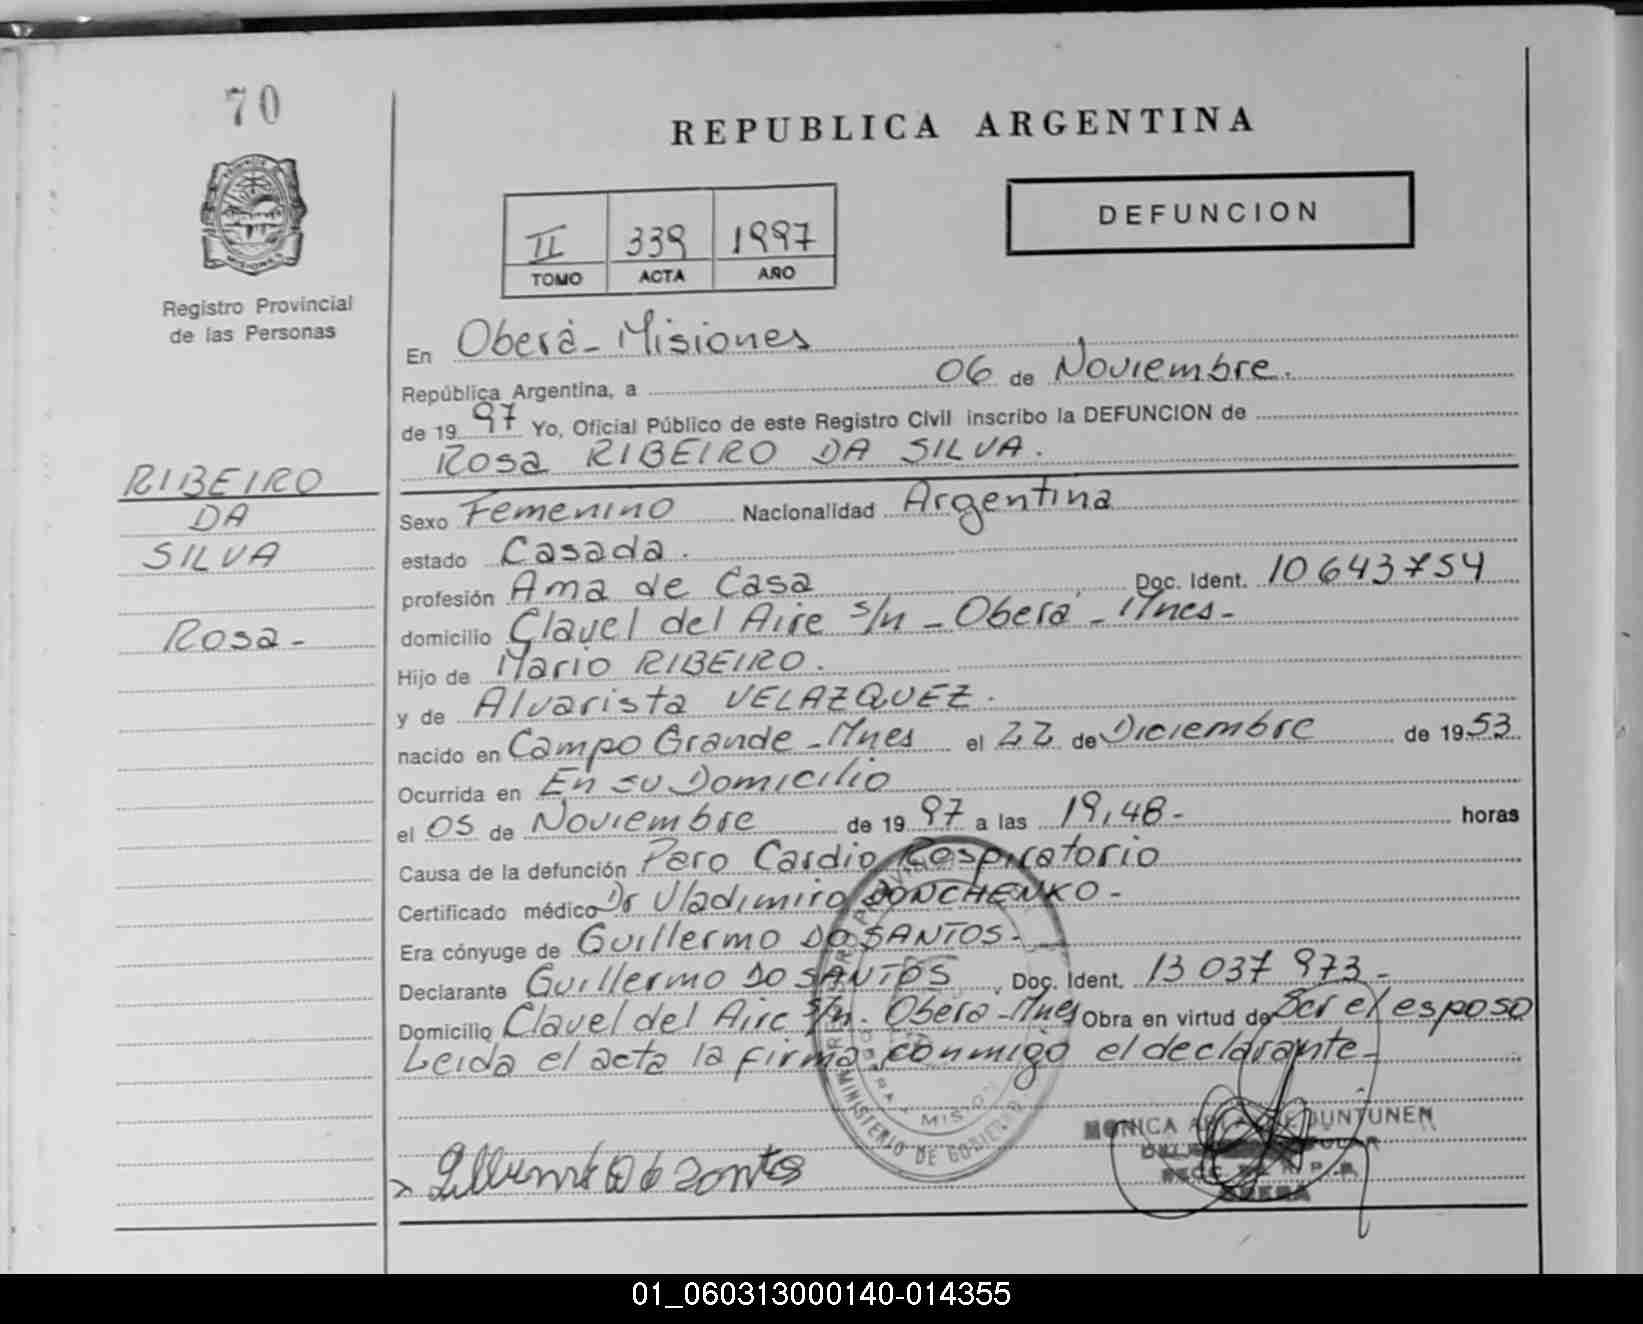 70
REPUBLICA ARGENTINA
DEFUNCION
II 339 1997
TOMO ACTA AÑO
MISIONES
Registro Provincial
de las Personas
En Oberá - Misiones
República Argentina, a 06 de Noviembre.
de 19 97 Yo, Oficial Público de este Registro Civil inscribo la DEFUNCION de
Rosa RIBEIRO DA SILVA.
RIBEIRO
DA
SILVA
Rosa-
Sexo Femenino Nacionalidad Argentina
estado Casada.
profesión Ama de Casa Doc. Ident. 10643754
domicilio Clavel del Aire s/n - Oberá - Mnes-
Hijo de Mario RIBEIRO.
y de Alvarista VELAZQUEZ.
nacido en Campo Grande - Mnes el 22 de Diciembre de 1953
Ocurrida en En su Domicilio
el 05 de Noviembre de 19 97 a las 19,48- horas
Causa de la defunción Paro Cardio Respiratorio
Certificado médico Dr Vladimiro DONCHENKO-
Era cónyuge de Guillermo DO SANTOS-
Declarante Guillermo DO SANTOS, Doc. Ident. 13 037 973-
Domicilio Clavel del Aire s/n. Obera - Mnes Obra en virtud de Ser el esposo
Leida el acta la firma conmigo el declarante-
MINISTERIO DE GOBIERNO
MONICA DE JUNTUNEN
OBERA
01_060313000140-014355